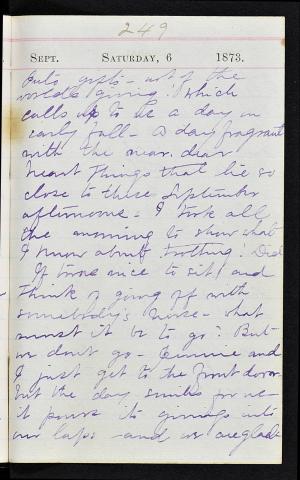 249
SEPT. SATURDAY, 6 1873.
puts gifts - not of the
world's giving! which
calls up to be a day in
early fall - A day fragrant
with the near, dear
heart things that lie so
close to these September
afternoons - I took all
the morning to show what
I know about trotting! Did
If twere nice to sit! and
think of going off with
somebody's horse - what
must it be to go? But
we don't go - and
I just get to the front door
but the day smiles for us -
it pours its givings into
our laps - and we are glad -